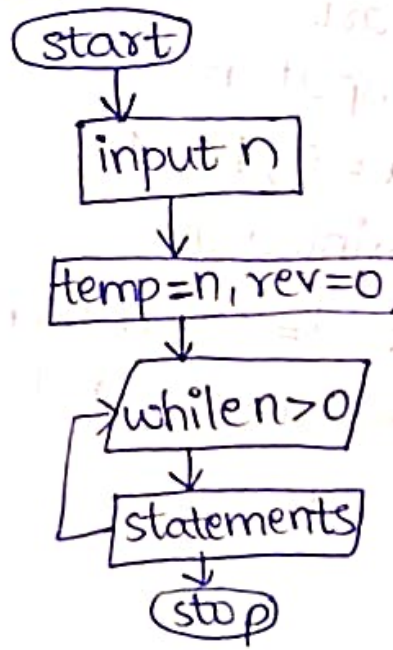 start
input n
temp=n, rev=0
while n>0
statements
stop